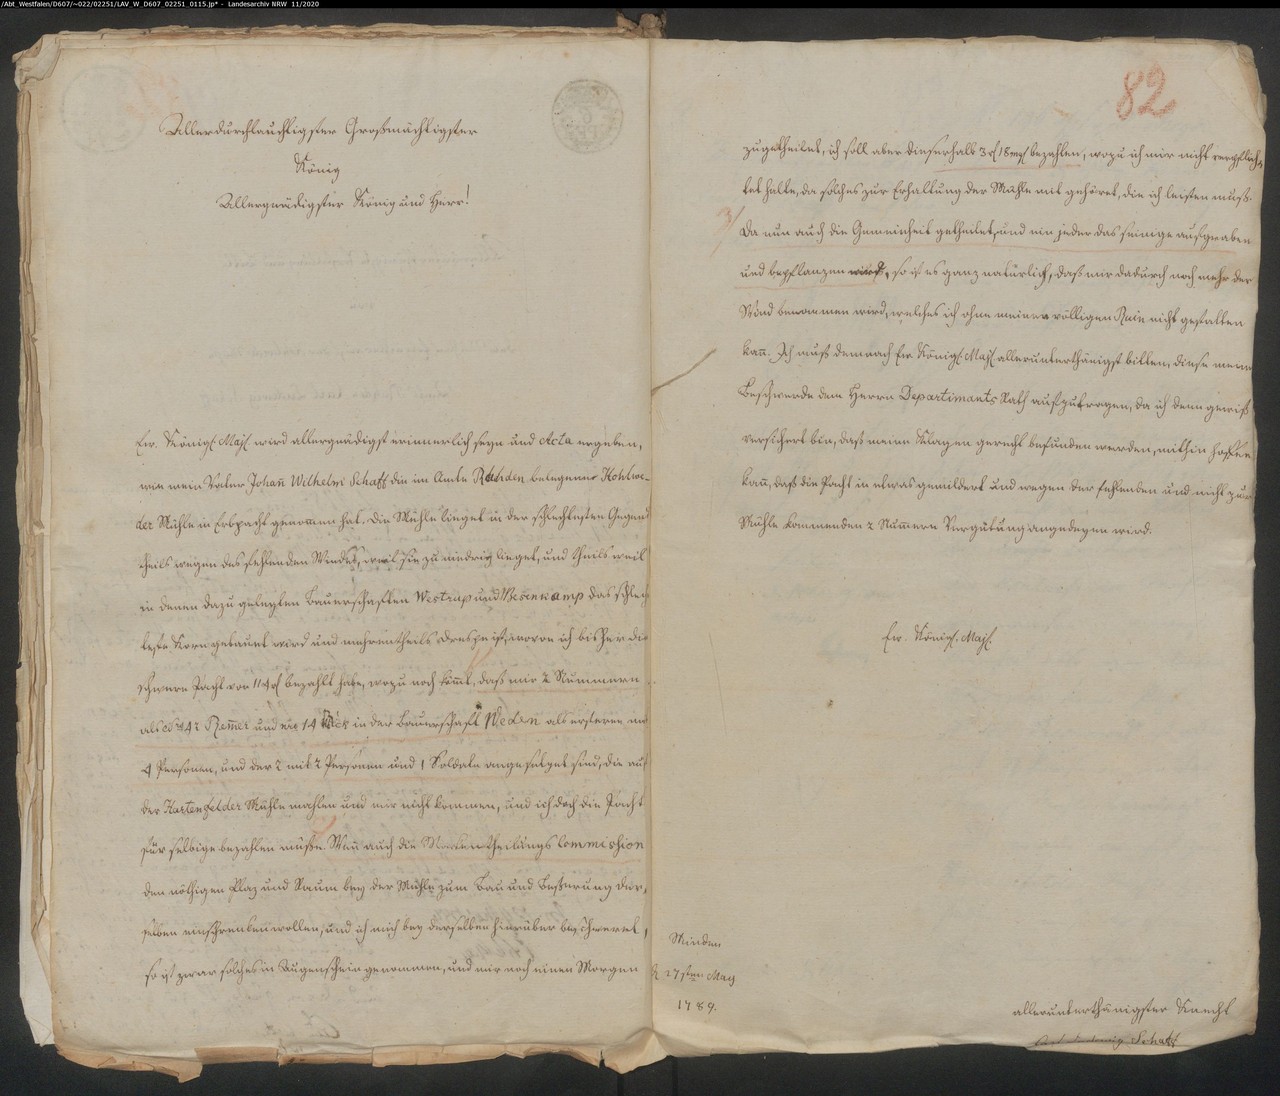 /Abt_Westfalen/D607/~022/02251/LAV_W_D607_02251_0115.jp* - Landesarchiv NRW 11/2020
Allerdurchlauchtigster Großmächtigster
König
Allergnädigster König und Herr!
Ew. Königl. Maj. wird allergnädigst erinnerlich seyn und Acta ergeben,
wie mein Vater Johan̄ Wilhelm Schaff die im Amte Rahden belegene Hohlwe-
der Mühle in Erbpacht genommen hat. Die Mühle lieget in der schlechtesten Gegend
theils wegen des fehlenden Windes, weil sie zu niedrig lieget, und theils weil
in denen dazu gelegten Bauerschaften Westrup und Wesenkamp das schlech
teste Korn gebauet wird und mehrentheils Drespe ist, wovon ich bisher die
schwere Pacht von 114 rt bezahlt habe, wozu noch kömt, daß mir 2 Nummern
als 42 Remer und 14 in der Bauerschaft Weden als ersterer mit
4 Personen, und der 2 mit 2 Personen und 1 Soldaten angesetzet sind, die auf
der Hartenfelder Mühle mahlen und mir nicht kommen, und ich doch die Pacht
für selbige bezahlen müße. Wan̄ auch die Markentheilungs Commishion
den nöthigen Plaz und Raum bey der Mühle zum Bau und Beßerung der-
selben einschrenken wollen, und ich mich bey derselben hierüber beschweret,
so ist zwar solches in Augenschein genommen, und mir noch einen Morgen
82
zugetheilet, ich soll aber dieserhalb 3 rt 18 mgl bezahlen, wozu ich mir nicht verpflich-
tet halte, da solches zur Erhaltung der Mühle mit gehöret, die ich leisten muß.
3/
Da nun auch die Gemeinheit getheilet, und ein jeder das seinige aufgraben
und bepflanzen wird, so ist es ganz natürlich, daß mir dadurch noch mehr der
Wind benommen wird, welches ich ohne meinen völligen Ruin nicht gestatten
kan̄. Ich muß demnach Ew. Königl. Maj. allerunterthänigst bitten, diese meine
Beschwerde dem Herrn Departimants Rath aufzutragen, da ich denn gewiß
versichert bin, daß meine Klagen gerecht befunden werden, mithin hoffen
kan̄, daß die Pacht in etwas gemildert und wegen der fehlenden und nicht zur
Mühle kommenden 2 Nummern Vergütung angedeyen wird.
Ew. Königl. Maj.
Minden
27sten May
1789.
allerunterthänigster Knecht
Schaff